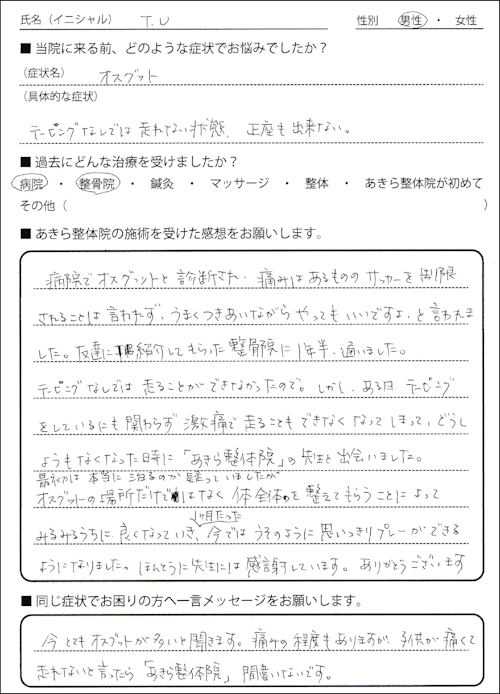 氏名（イニシャル） T.U 性別 男性 ・ 女性
■ 当院に来る前、どのような症状でお悩みでしたか？
（症状名） オスグット
（具体的な症状）
テーピングなしでは走れない状態、正座も出来ない。
■ 過去にどんな治療を受けましたか？
病院 ・ 整骨院 ・ 鍼灸 ・ マッサージ ・ 整体 ・ あきら整体院が初めて
その他（ ）
■ あきら整体院の施術を受けた感想をお願いします。
病院でオスグットと診断され、痛みはあるもののサッカーを制限
されることは言われず、うまくつきあいながらやってもいいですよ、と言われま
した。友達に紹介してもらった整骨院に1年半、通いました。
テーピングなしでは走ることができなかったので。しかし、ある日、テーピング
をしているにも関わらず激痛で走ることもできなくなってしまって、どうし
ようもなくなった時に「あきら整体院」の先生と出会いました。
最初は本当に治るのか疑っていましたが
オスグットの場所だけではなく体全体を整えてもらうことによって
1ヶ月たった
みるみるうちに良くなっていき、今ではうそのように思いっきりプレーができる
ようになりました。ほんとうに先生には感謝しています。ありがとうございます
■ 同じ症状でお困りの方へ一言メッセージをお願いします。
今とてもオスグットが多いと聞きます。痛みの程度もありますが、子供が痛くて
走れないと言ったら「あきら整体院」間違いないです。